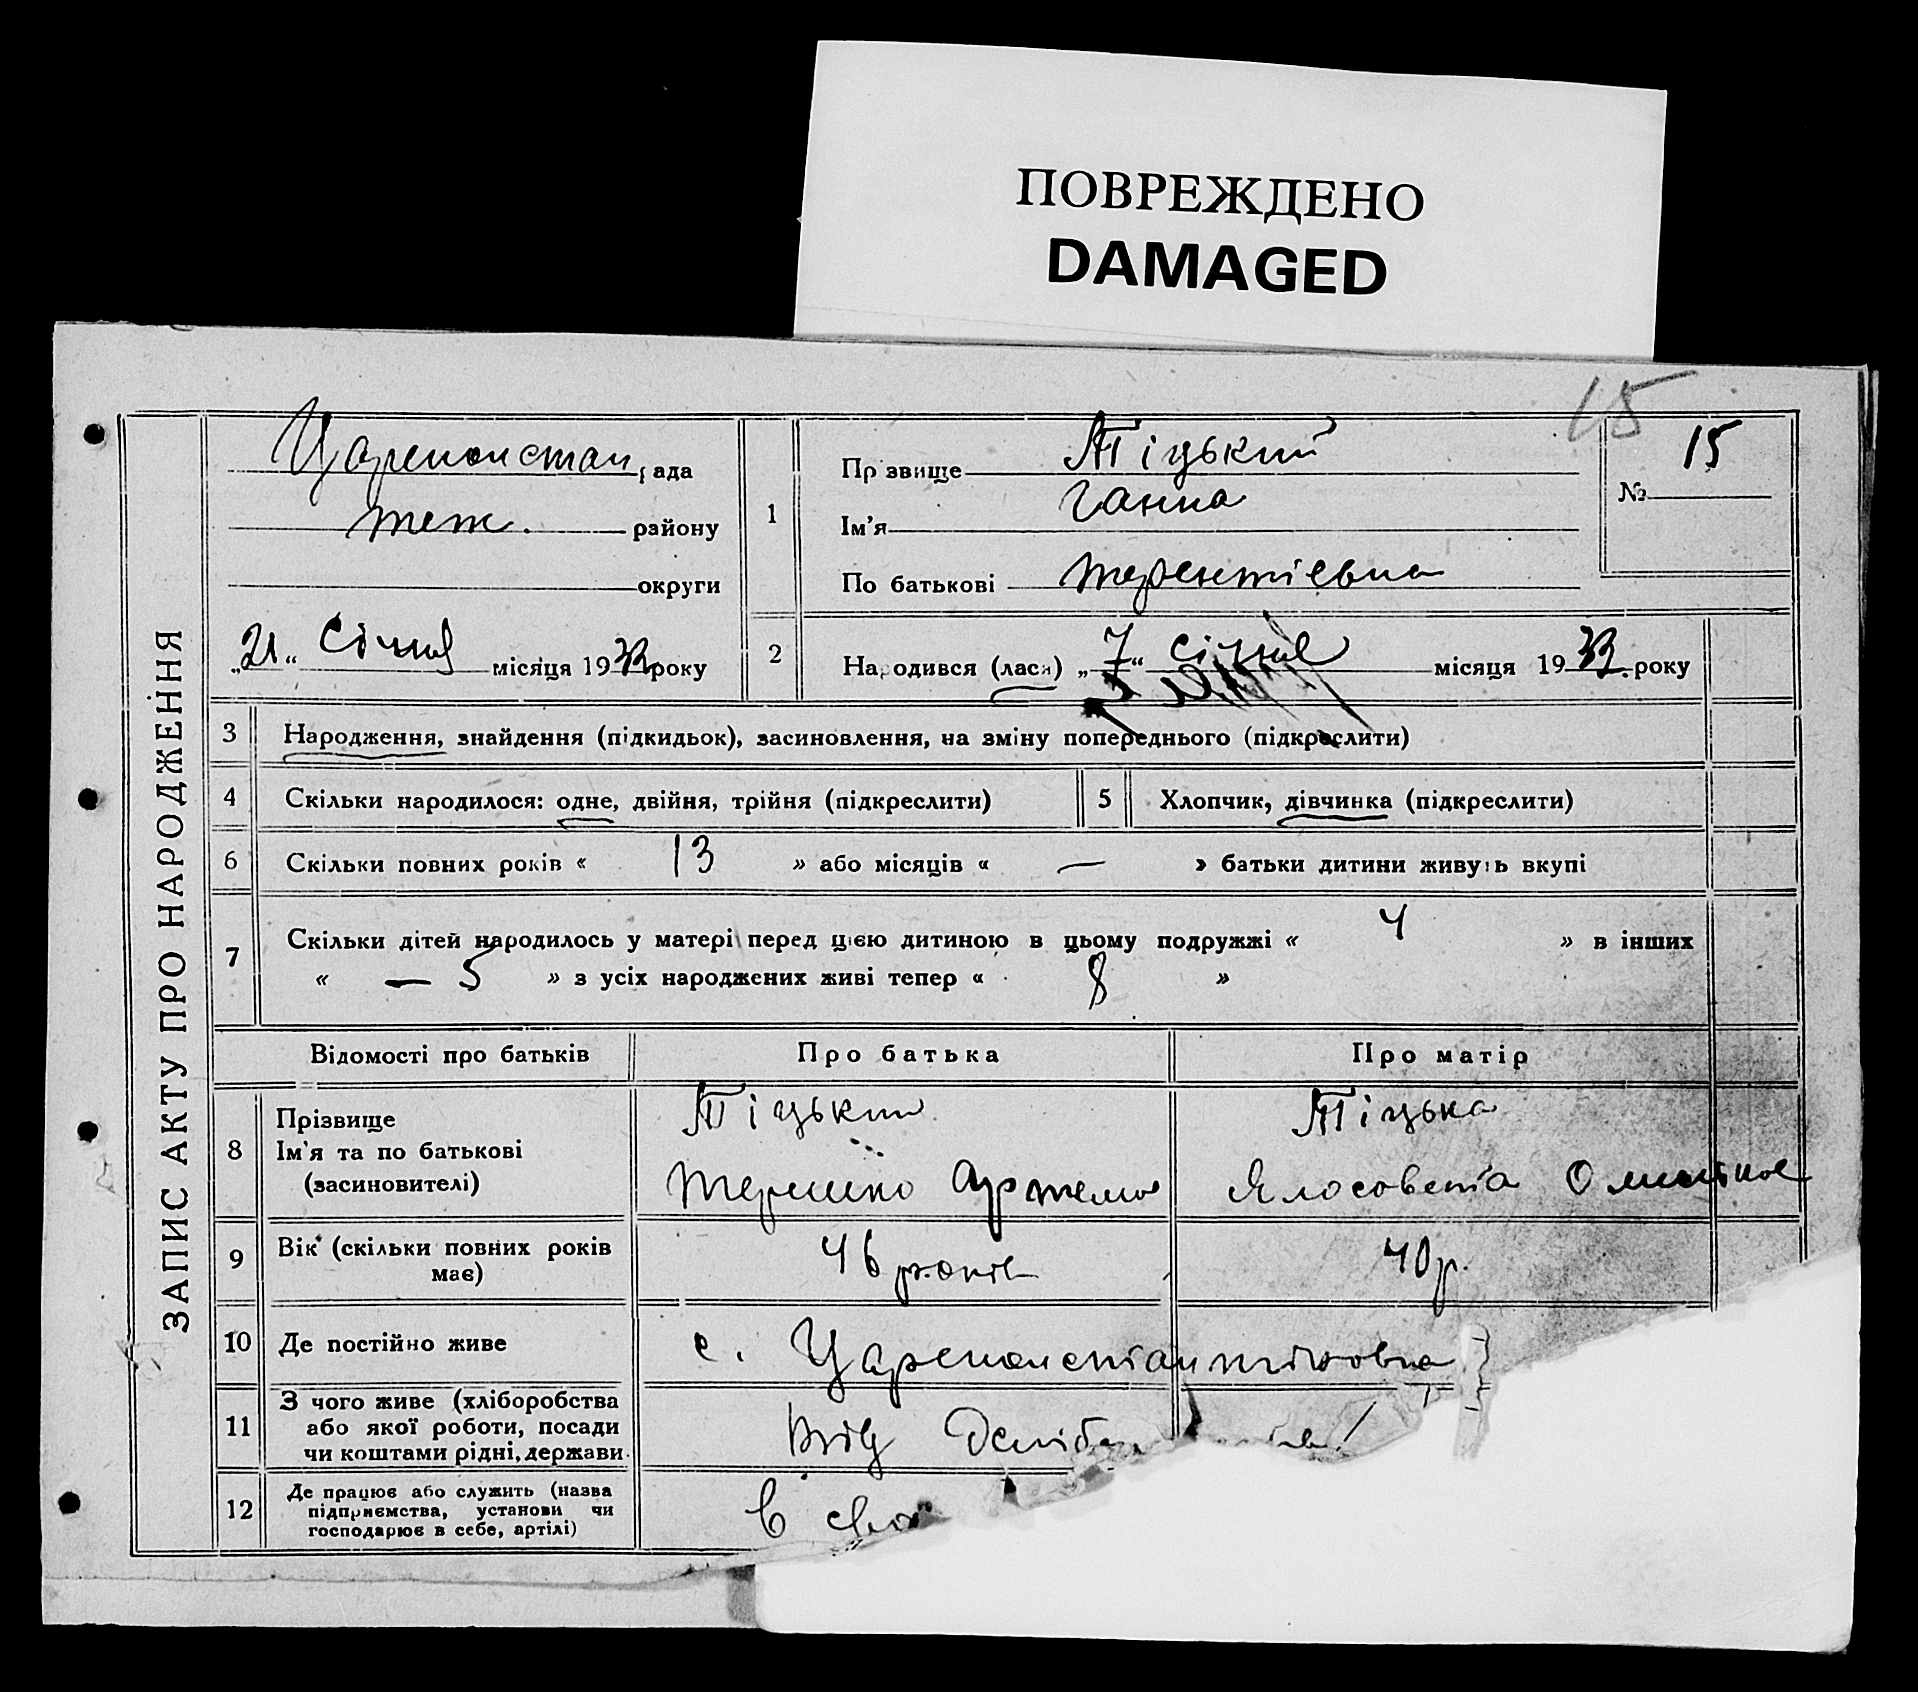 ПОВРЕЖДЕНО
DAMAGED
15
ЗАПИС АКТУ ПРО НАРОДЖЕННЯ
Цареконстан рада
теж. району
округи
„21“ Січня місяця 1933 року
1
Прізвище Тіцький
Ім'я Ганна
По батькові Терентіевна
№ 15
2
Народився (лася) „7“ січня місяця 1933 року
3 Народження, знайдення (підкидьок), засиновлення, на зміну попереднього (підкреслити)
4 Скільки народилося: одне, двійня, трійня (підкреслити)
5 Хлопчик, дівчинка (підкреслити)
6 Скільки повних років « 13 » або місяців « — » батьки дитини живуть вкупі
7 Скільки дітей народилось у матері перед цією дитиною в цьому подружжі « 4 » в інших
« — 5 » з усіх народжених живі тепер « 8 »
Відомості про батьків Про батька Про матір
8 Прізвище
Ім'я та по батькові
(засиновителі)
Тіцький
Артемов
Тіцька
Ялосовета
9 Вік (скільки повних років
має)
46 років
40 р.
10 Де постійно живе с. Цареконстантіновка
11 З чого живе (хліборобства
або якої роботи, посади
чи коштами рідні, держави
від
12 Де працює або служить (назва
підприємства, установи чи
господарює в себе, артілі)
в